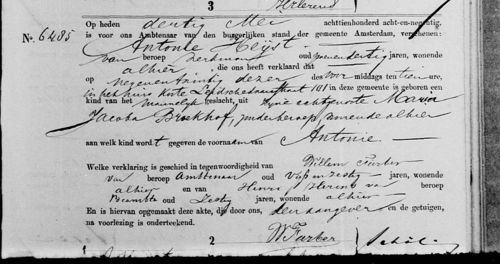 3
No. 6485
Op heden dertig Mei achttienhonderd acht-en-negentig,
is voor ons Ambtenaar van den burgerlijken stand der gemeente Amsterdam, verschenen:
Antonie Heijst
van beroep oud jaren, wonende
alhier, die ons heeft verklaard dat
op negenentwintig dezer des voor middags ten tien ure,
in het huis Korte 101 in deze gemeente is geboren een
kind van het mannelijk geslacht, uit zijne echtgenote Maria
Jacoba Broekhof, zonder beroep, wonende alhier
aan welk kind wordt gegeven de voornaam van Antonie.
Welke verklaring is geschied in tegenwoordigheid van Willem Farber
van beroep Ambtenaar oud jaren, wonende
alhier en van Henri van beroep
oud zestig jaren, wonende alhier
En is hiervan opgemaakt deze akte, die door ons, den aangever en de getuigen,
na voorlezing is onderteekend.
2
W Farber